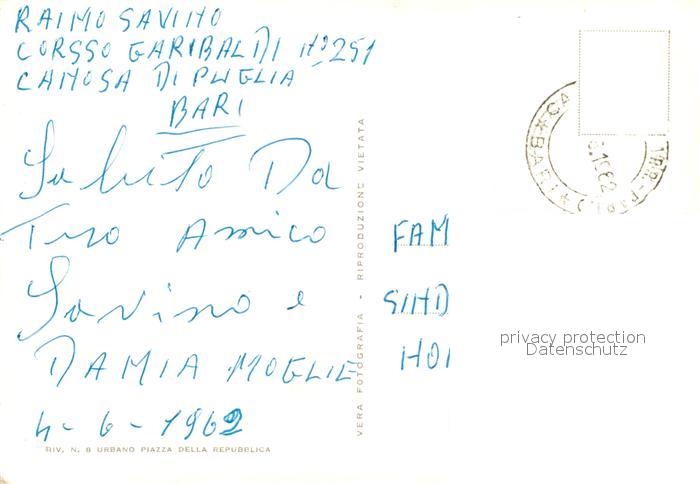 RAIMO SAVINO
CORSSO GARIBALDI Nº 251
CANOSA DI PUGLIA
BARI
Saluto Da
Tuo Amico
Savino e
DAMIA MOGLIE
4-6-1962
RIV. N. 8 URBANO PIAZZA DELLA REPUBBLICA
VERA FOTOGRAFIA - RIPRODUZIONE VIETATA
FAM
SIND
NOI
CA
* BARI *
.1962
privacy protection
Datenschutz